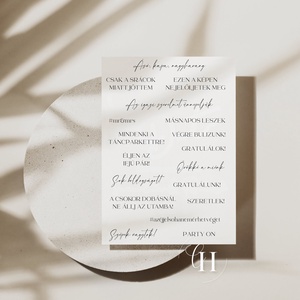 Ásó, kapa, nagyharang
CSAK A SRÁCOK
MIATT JÖTTEM
EZEN A KÉPEN
NE JELÖLJETEK MEG
Az igazi szerelmet ünnepeljük
MÁSNAPOS LESZEK
MINDENKI A
TÁNCPARKETTRE!
VÉGRE BULIZUNK!
GRATULÁLOK!
ÉLJEN AZ
IFJÚ PÁR!
Örökké a miénk
Sok boldogságot!
GRATULÁLUNK!
A CSOKOR DOBÁSNÁL
NE ÁLLJ AZ UTAMBA!
SZERETLEK!
Szépek vagytok!
PARTY ON
H